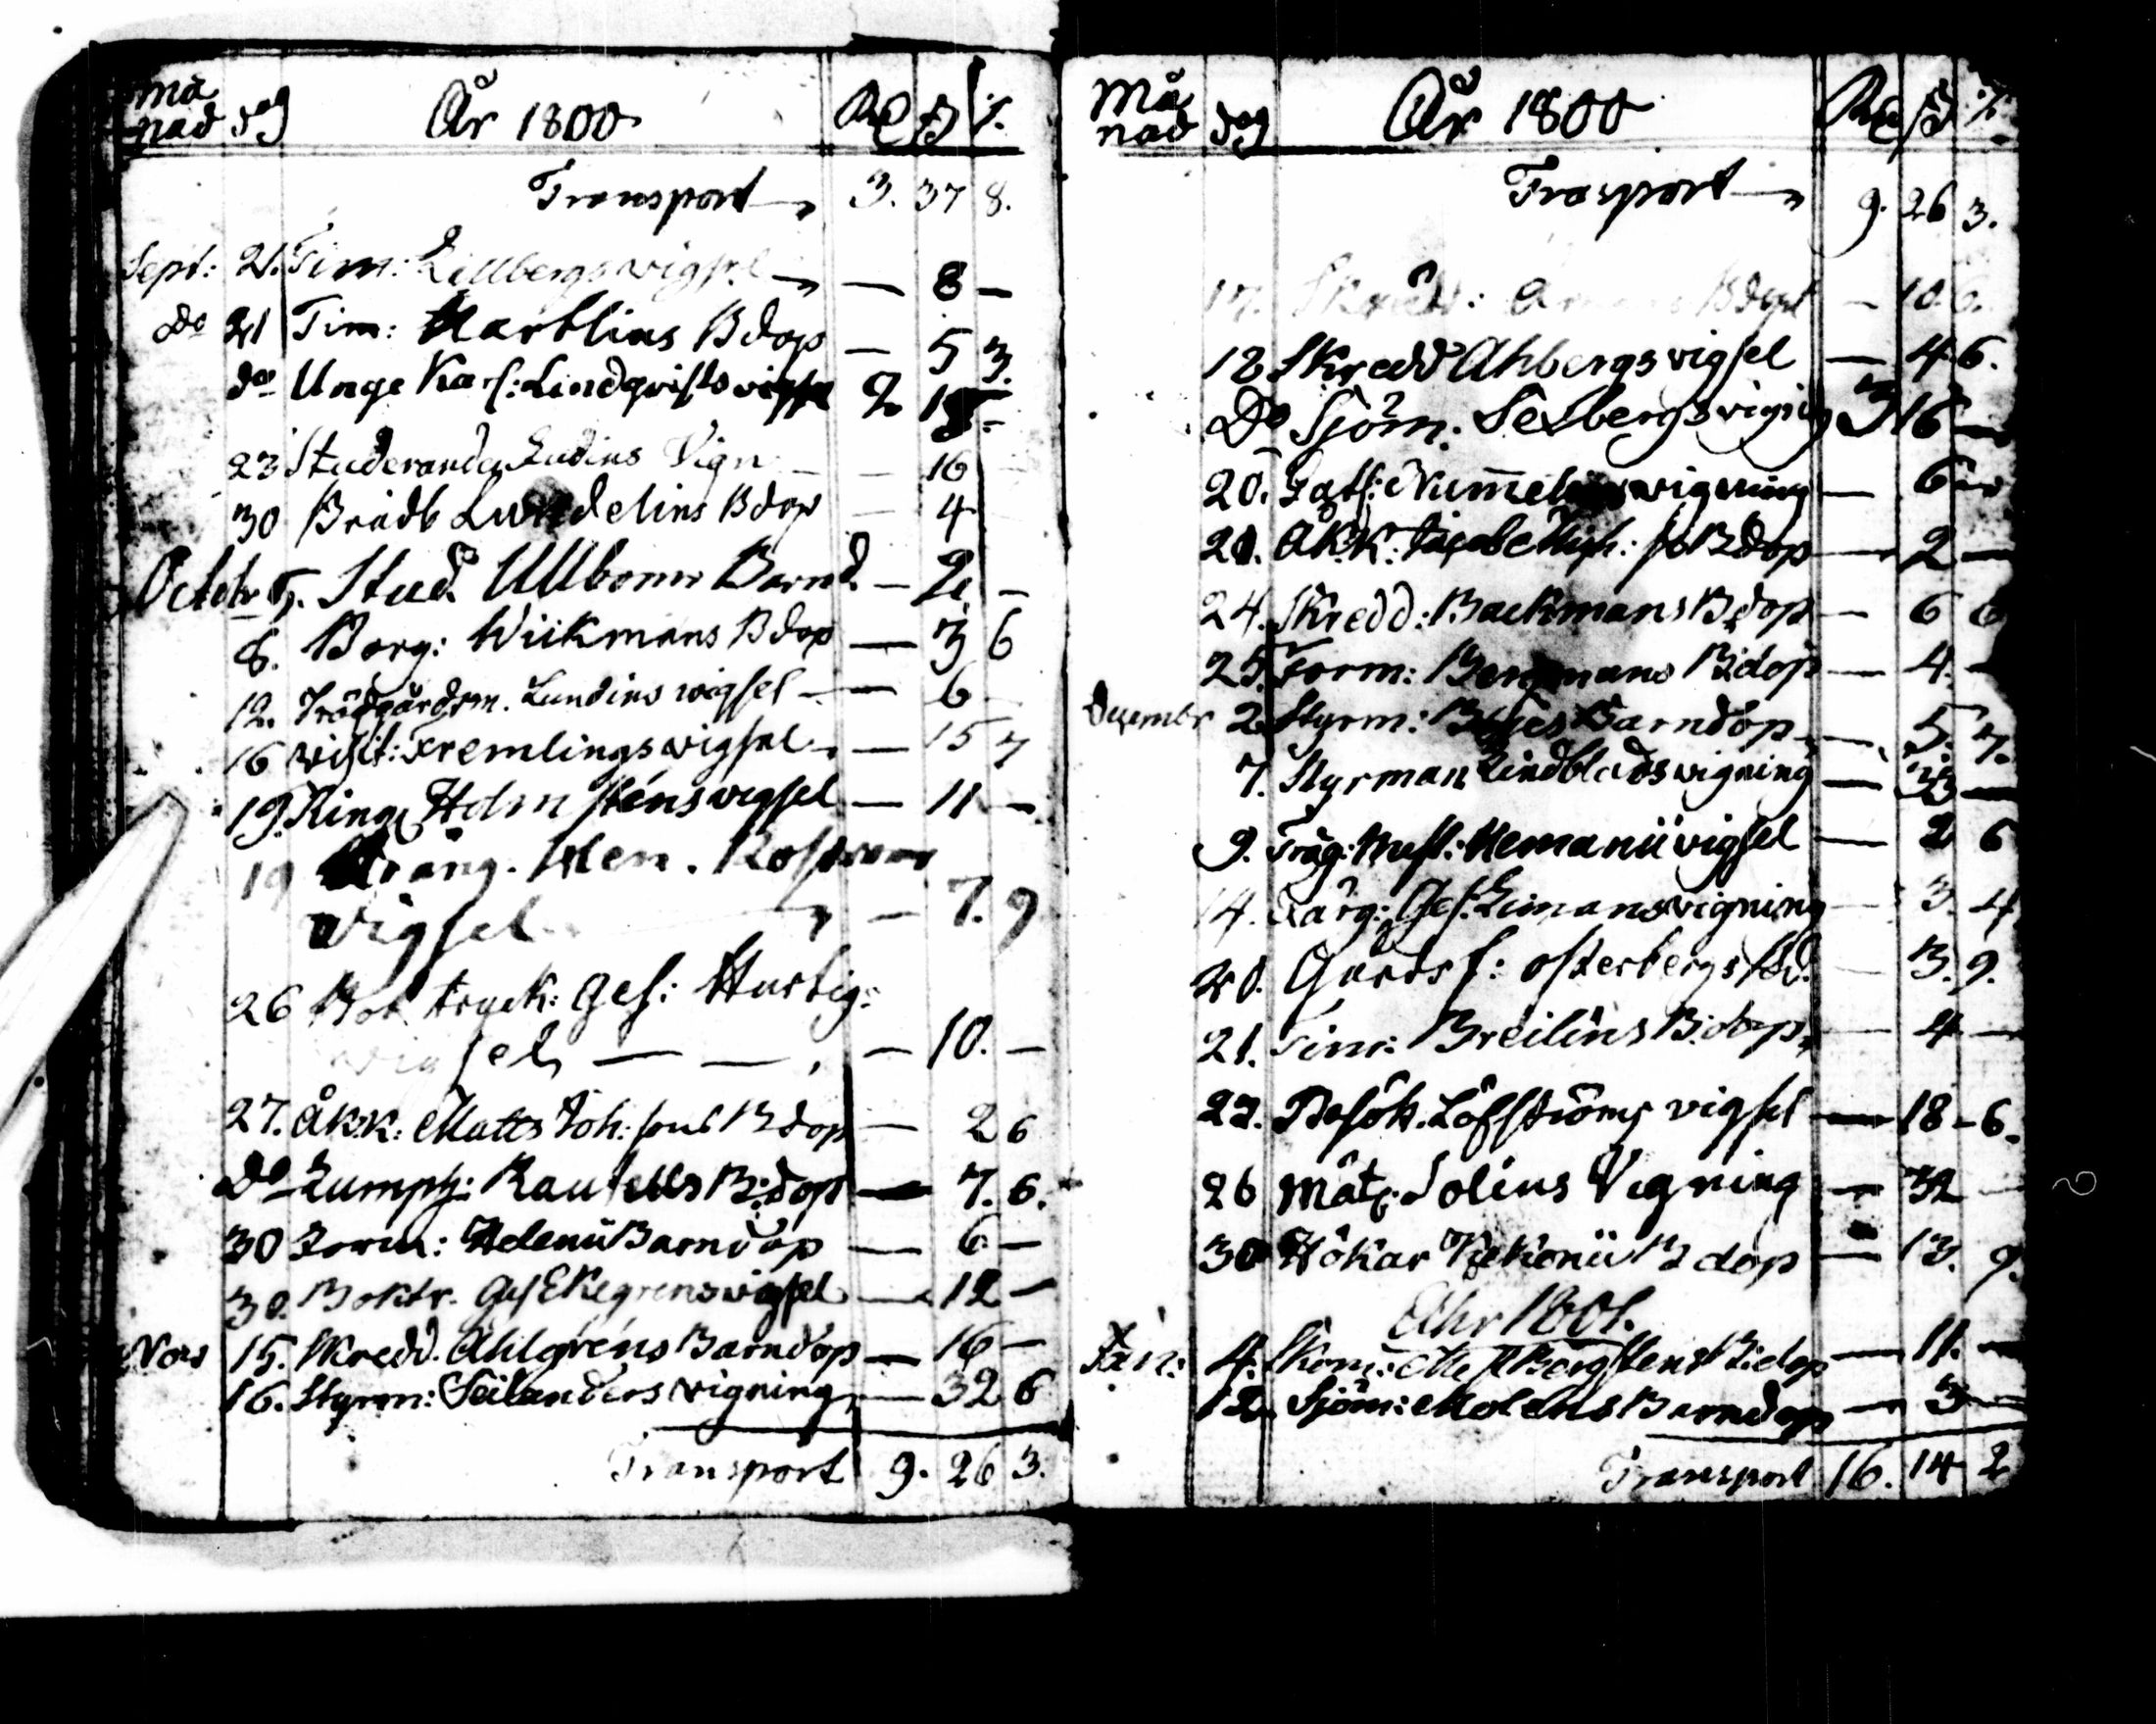 Må
nad dag År 1800 Rd ß rs.
Transport 3. 37 8.
Sept: 21. Tim: Lillbergs vigsel — 8 —
do 21 Tim: Martlins Bdop — 5 3.
do Unge Karl: Lindqvists vigsel 2
23 Studeranden Ludins Vign — 16
30 Brådb Lundelins Bdop — 4
Octobr 5. Stud. Ullboms Barnd. — 2 —
8. Borg: Wiikmans Bdop — 3 6
12. Trädgårdsm. Lundins wigsel — 6
16 visit: Fremlings vigsel — 15 7
19. Ring Holmsténs vigsel — 11 —
19 Dräng. Hen.
vigsel — 7. 9
26 Bok tryck: Ges: Hurtigs
vigsel — — — 10. —
27. Åkk: Matts Joh: sons Bdop — 2 6
Do Lumpf: Rausells B:dop — 7. 6.
30 Form: Helenii Barndop — 6 —
30. Boktr. Ges Ekegrens vigsel — 12 —
Nov 15. Skredd. Ahlgréns Barndop — 16 —
16. Styrm: Seilanders vigning — 32 6
Transport 9. 26 3.
Må
nad dag År 1800 Rd ß rs.
Trasport 9. 26 3.
17. Skredd: Bdop — 10 6.
12 Skredd Ahbergs vigsel — 4 6.
Do Sjöm: Selbergs vigning 3 16 —
20. Gats: Nummelins vigning — 6 —
21. Åkk: Jacob Mich: s. Bdop — 2 —
24. Skredd: Backmans Bdop — 6 6
25. Form: Bergmans B:dop — 4. —
Decembr 2. Styrm: Barndop — 5. 7.
7. Styrman Lindblads vigning — 32 —
9. Träg: Mest: Hemanii vigsel — 2 6
14. Färg: Ges: Limans vigning — 3. 4
20. Gardsf: osterbergs — 3. 9.
21. Tim: Breilins B:dop — 4 —
22. Besök. Löfströms vigsel — 18 - 6.
26 Mät: Solins Vigning — 32 —
30 Hökar Kekonii Bdop — 13. 9.
Ahr 1801.
Jan: 4. Skom: Mest Bergstens B:dop — 11. —
12. Sjöm: Molens Barndop — 3 —
Transport 16. 14 2